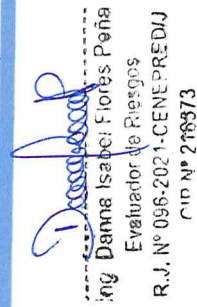 Ing. Danna Isabel Flores Peña
Evaluador de Riesgos
R.J. Nº 096-2021-CENEPRED/J
CIP Nº 216573